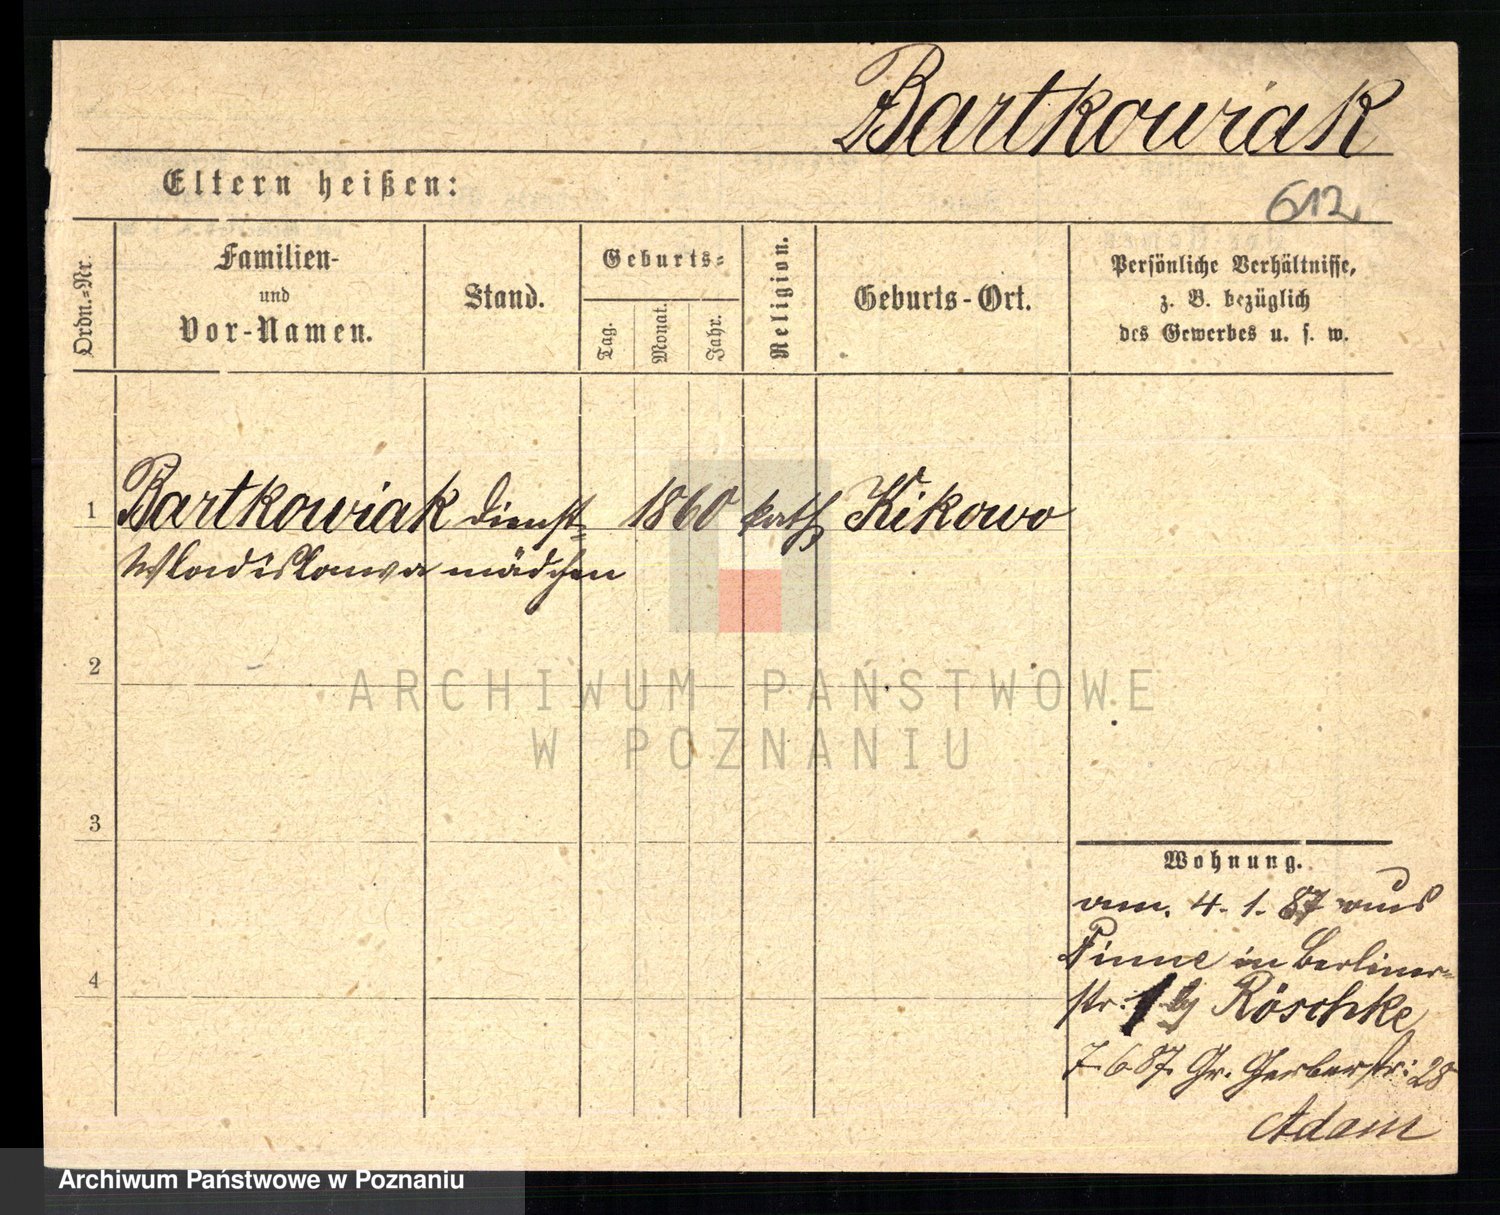 Bartkowiak
Eltern heißen:
612
Ordn.-Nr.
Familien-
und
Vor-Namen.
Stand.
Geburts-
Tag.
Monat.
Jahr.
Religion.
Geburts-Ort.
Persönliche Verhältnisse,
z. B. bezüglich
des Gewerbes u. s. w.
1 Bartkowiak Dienst- 1860 kath Kikowo
Wladislawa mädchen
2
3
4
Wohnung.
am. 4. 1. 87 aus
Pinne in Berliner-
str. 1 Röschke
7.6.87. Gr. Gerberstr: 28
Adam
ARCHIWUM PAŃSTWOWE
W POZNANIU
Archiwum Państwowe w Poznaniu